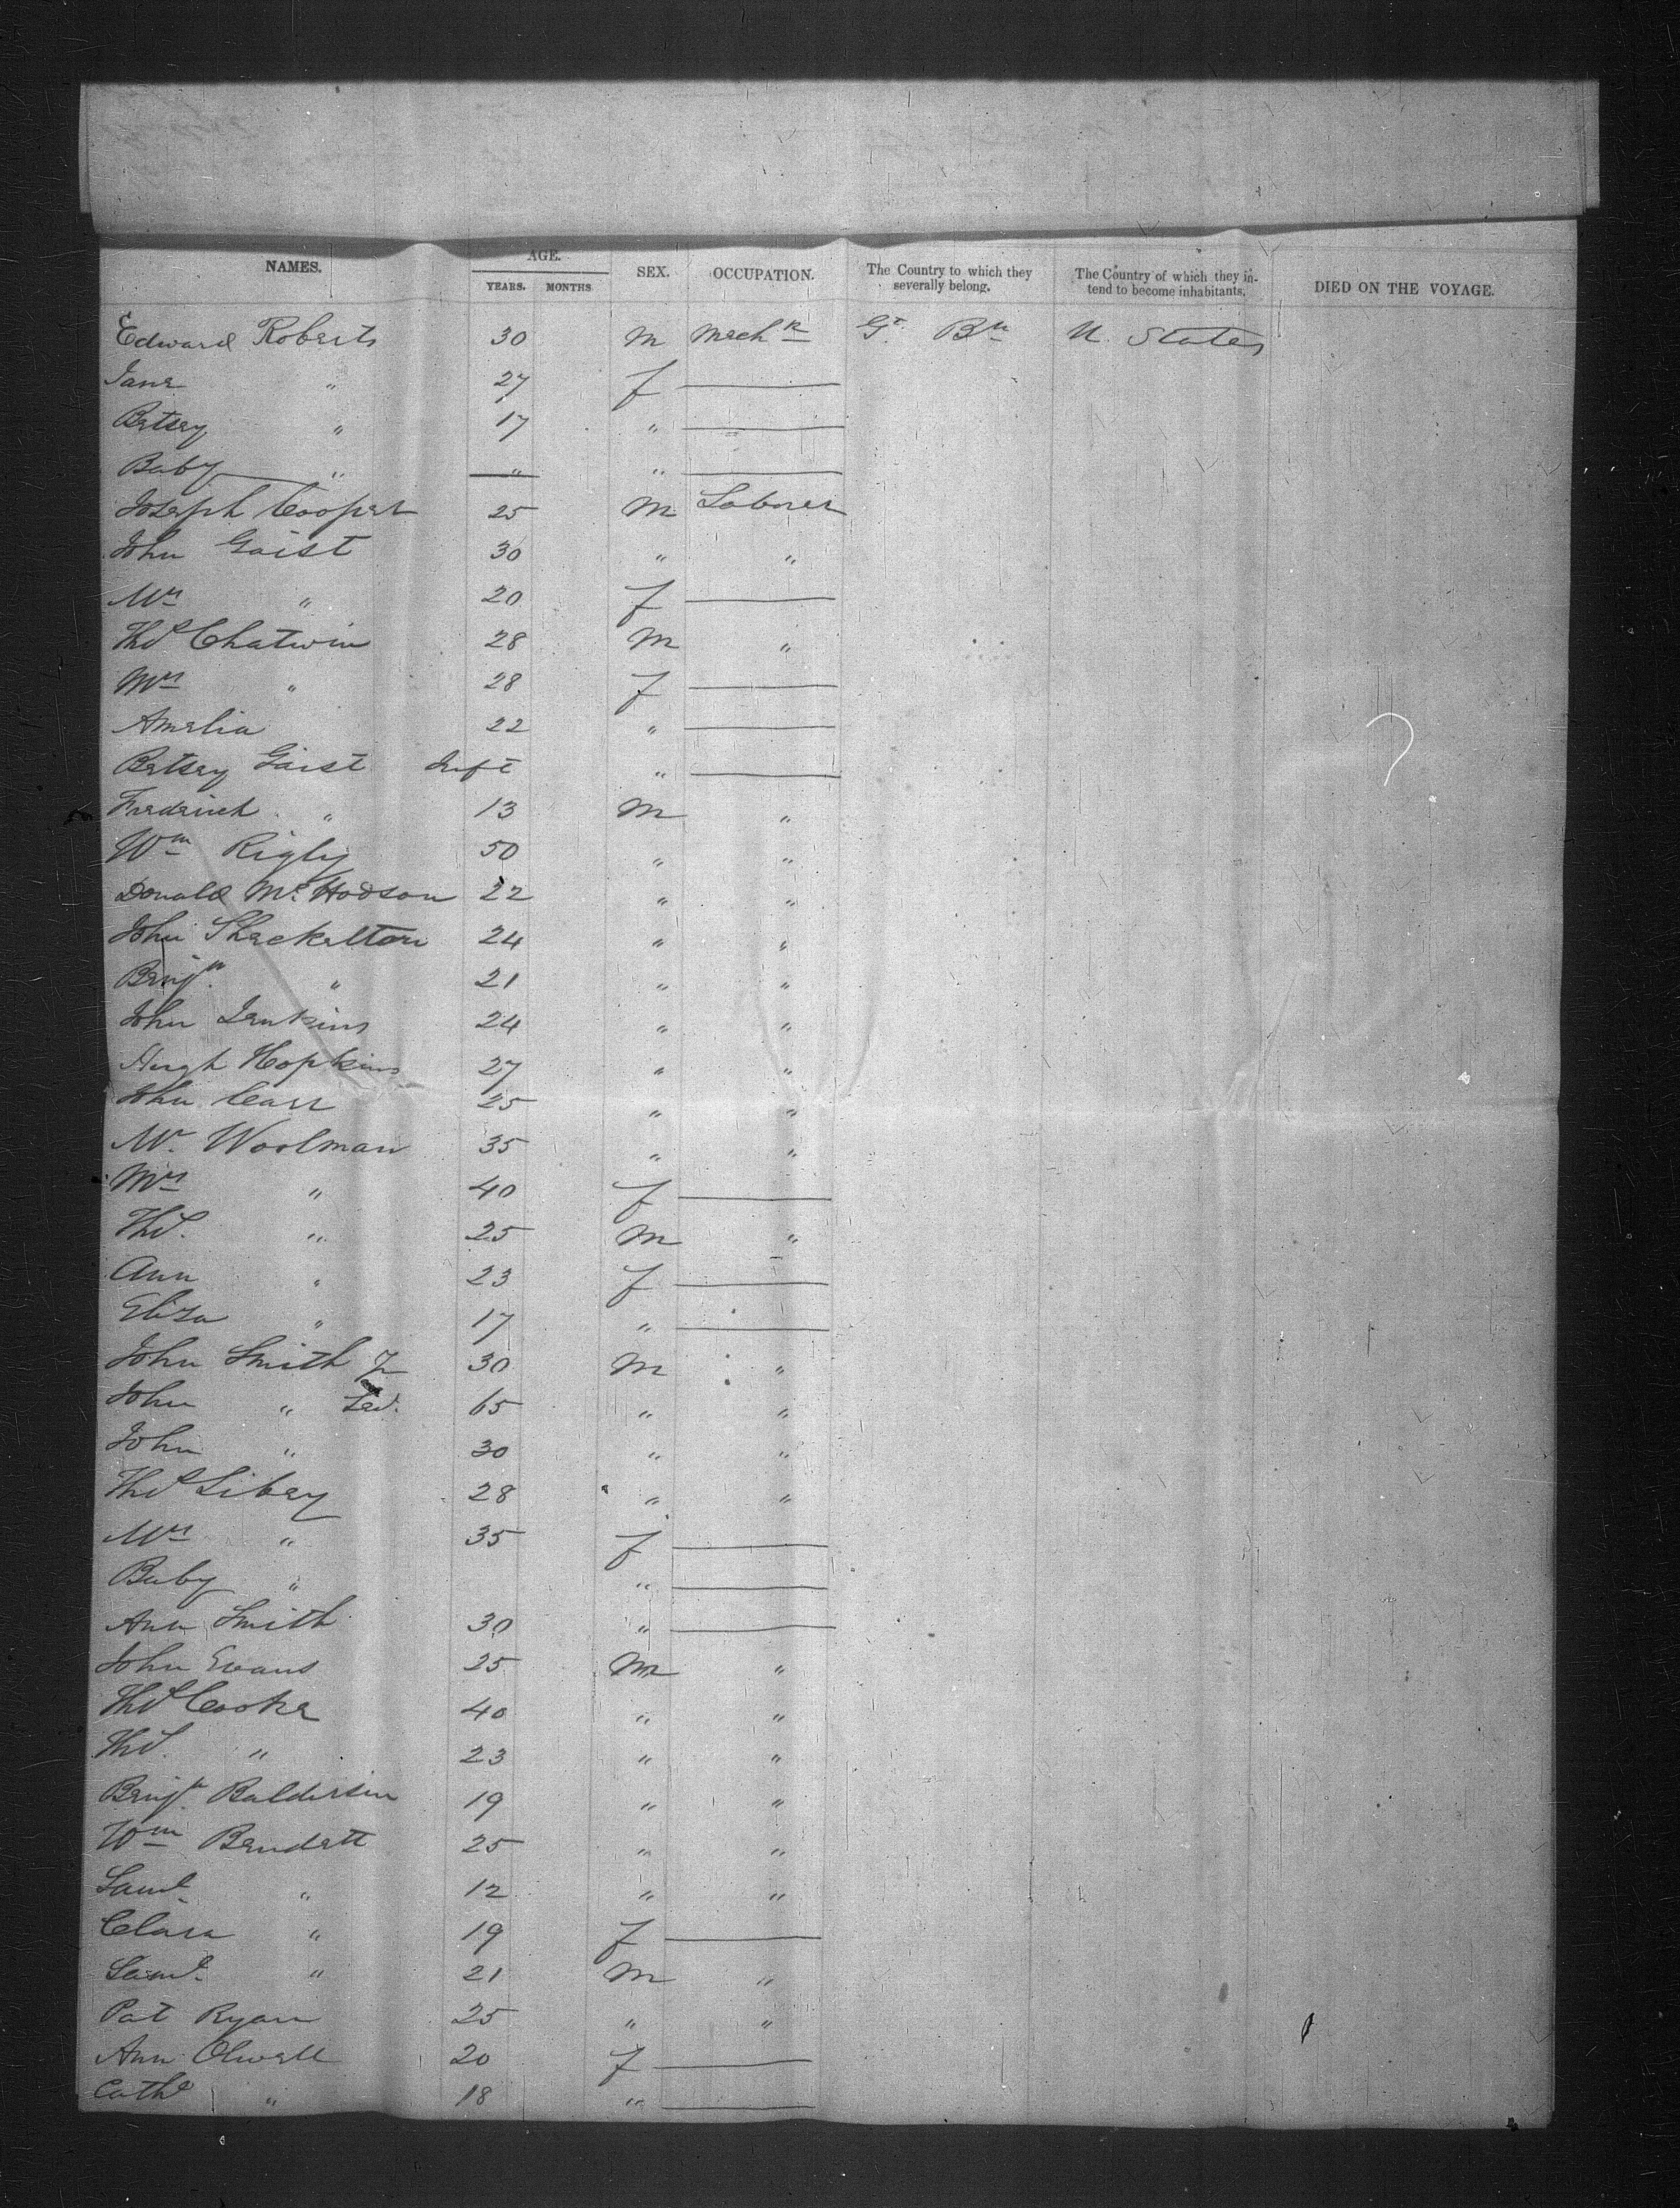 NAMES. AGE. SEX. OCCUPATION. The Country to which they severally belong. The Country of which they intend to become inhabitants. DIED ON THE VOYAGE.
YEARS. MONTHS
Edward Roberts 30 M Mechk Gt. Bn U. States
Jane " 27 f
Betsey " 17 "
Baby " " "
Joseph Cooper 25 M Laborer
John Gaist 30 " "
Mrs " 20 f
Thos Chatwin 28 M "
Mrs " 28 f
Amelia 22 "
Betsey Gaist Inft "
Frederick " 13 M "
Wm Rigby 50 " "
Donald Mc Hodson 22 " "
John Shackelton 24 " "
Benjn. " 21 " "
John Jenkins 24 " "
Hugh Hopkins 27 " "
John Carr 25 " "
Mr. Woolman 35 " "
Mrs " 40 f
Thos. " 25 M "
Ann " 23 f
Eliza " 17 "
John Smith Jr 30 M "
John " 65 " "
John " 30 " "
Thos Sibey 28 " "
Mrs " 35 f
Baby " "
Ann Smith 30 "
John Evans 25 M "
Thos Cooke 40 " "
Thos. " 23 " "
Benjn. Baldersin 19 " "
Wm Bendett 25 " "
Saml " 12 " "
Clara " 19 f
Saml. " 21 M "
Pat Ryan 25 " "
Ann Olwell 20 f
Cathe " 18 "